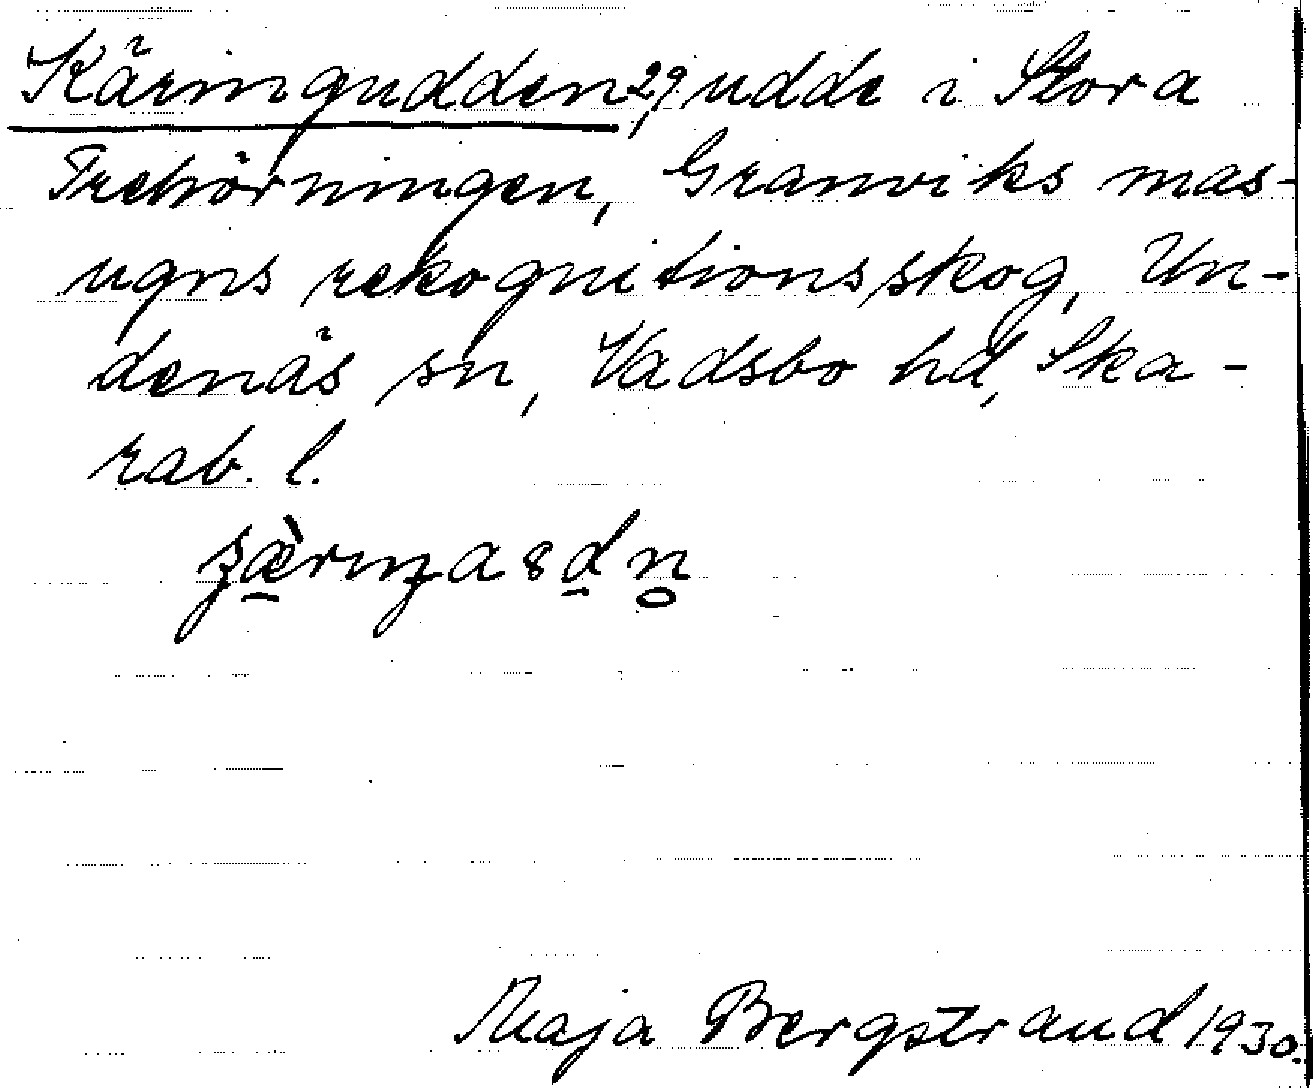 Käringudden 29, udde i Stora
Trehörningen, Granviks mas-
ugns rekognitionsskog, Un-
denäs sn, Vadsbo hd, Ska-
rab. l.
Maja Bergstrand 1930.